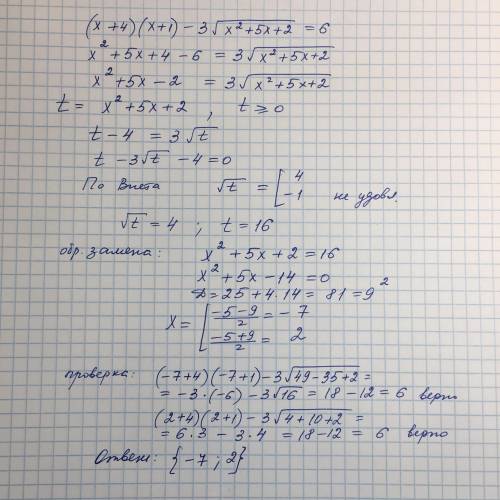 (x+4)(x+1) - 3√(x²+5x+2) = 6
x²+5x+4-6 = 3√(x²+5x+2)
x²+5x-2 = 3√(x²+5x+2)
t = x²+5x+2 , t ≥ 0
t-4 = 3√t
t-3√t-4=0
По Виета √t = [ 4 -1 не удовл.
√t = 4 ; t = 16
обр. замена: x²+5x+2=16
x²+5x-14=0
D=25+4·14=81=9²
x = [ (-5-9)/2 = -7
(-5+9)/2 = 2
проверка: (-7+4)(-7+1)-3√(49-35+2) =
= -3·(-6) - 3√16 = 18-12 = 6 верно
(2+4)(2+1)-3√(4+10+2) =
= 6·3 - 3·4 = 18-12 = 6 верно
Ответ: {-7; 2}